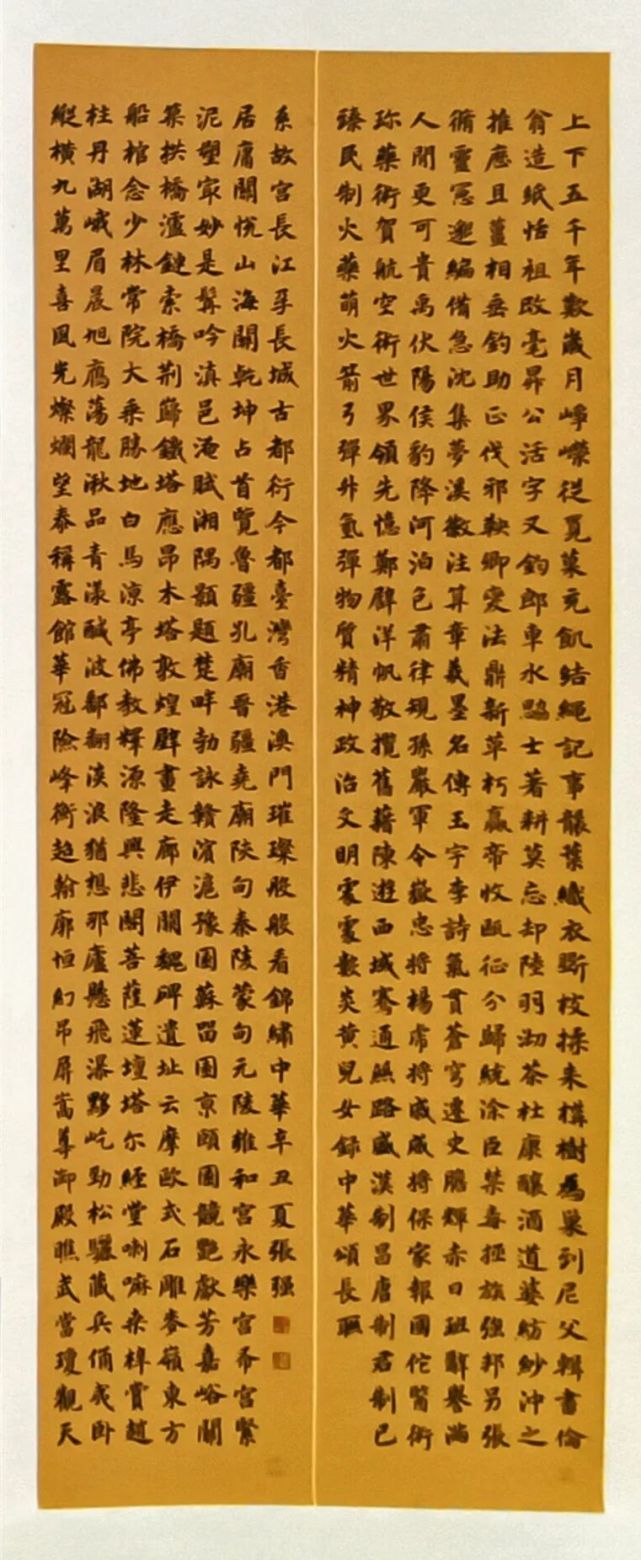 上下五千年數歲月崢嶸從覓菓充飢結繩記事韻葉織衣斲枝揉耒構樹爲巢到尼父輯書倫
翁造紙恬祖改毫昇公活字又鈞郎車水翻士著耕莫忘却陸羽沏茶杜康釀酒道婆紡紗沖之
推應且薑相垂釣助正伐邪鞅卿变法鼎新革朽嬴帝收甌征分歸統涂臣禁毒拯族強邦另張
脩靈冤邀編備急沈集夢溪徽注算章羲墨名傳玉宇李詩氣貫蒼穹遷史膽輝赤日班辭譽滿
人間更可貴禹伏陽侯豹降河泊包肅律規孫嚴軍令嶽忠將楊虎將戚威將保家報國佗醫術
珎藥術賀航空術世界領先憶鄭辟洋帆敬攬舊藉陳遊西域騫通絲路盛漢制昌唐制君制已
臻民制火藥萌火箭弓彈升氫彈物質精神政治文明雲雲數炎黃兒女録中華頌長聯
縱橫九萬里喜風光燦爛望泰稱露館華冠險峰衡趙翰廓恒幻吊屏嵩尊御殿瞧武當瓊觀天
柱丹湖峨眉晨旭鴈蕩龍湫品青漾鹹波鄱翻淡浪猶想那廬懸飛瀑黟屹勁松驪藏兵俑成卧
船棺念少林常院大乘勝地白馬涼亭佛教輝源隆興悲閣菩薩蓮壇塔尔經堂喇嘛桑梓賞趙
築拱橋瀘鏈索橋荆蘄鐵塔應昂木塔敦煌壁畫走廊伊闕魏碑遺址云摩歐式石雕麥嶺東方
泥塑家妙是髯吟滇邑淹賦湘隅顥題楚畔勃詠贛濱滬豫園蘇留園京頤園競艷獻芳嘉峪關
居庸關悅山海關乾坤占首覽魯疆孔廟晉疆堯廟陝句秦陵蒙句元陵雍和宮永樂宮布宮緊
系故宮長江孚長城古都衍今都臺灣香港澳門璀璨般般看錦繡中華辛丑夏張强